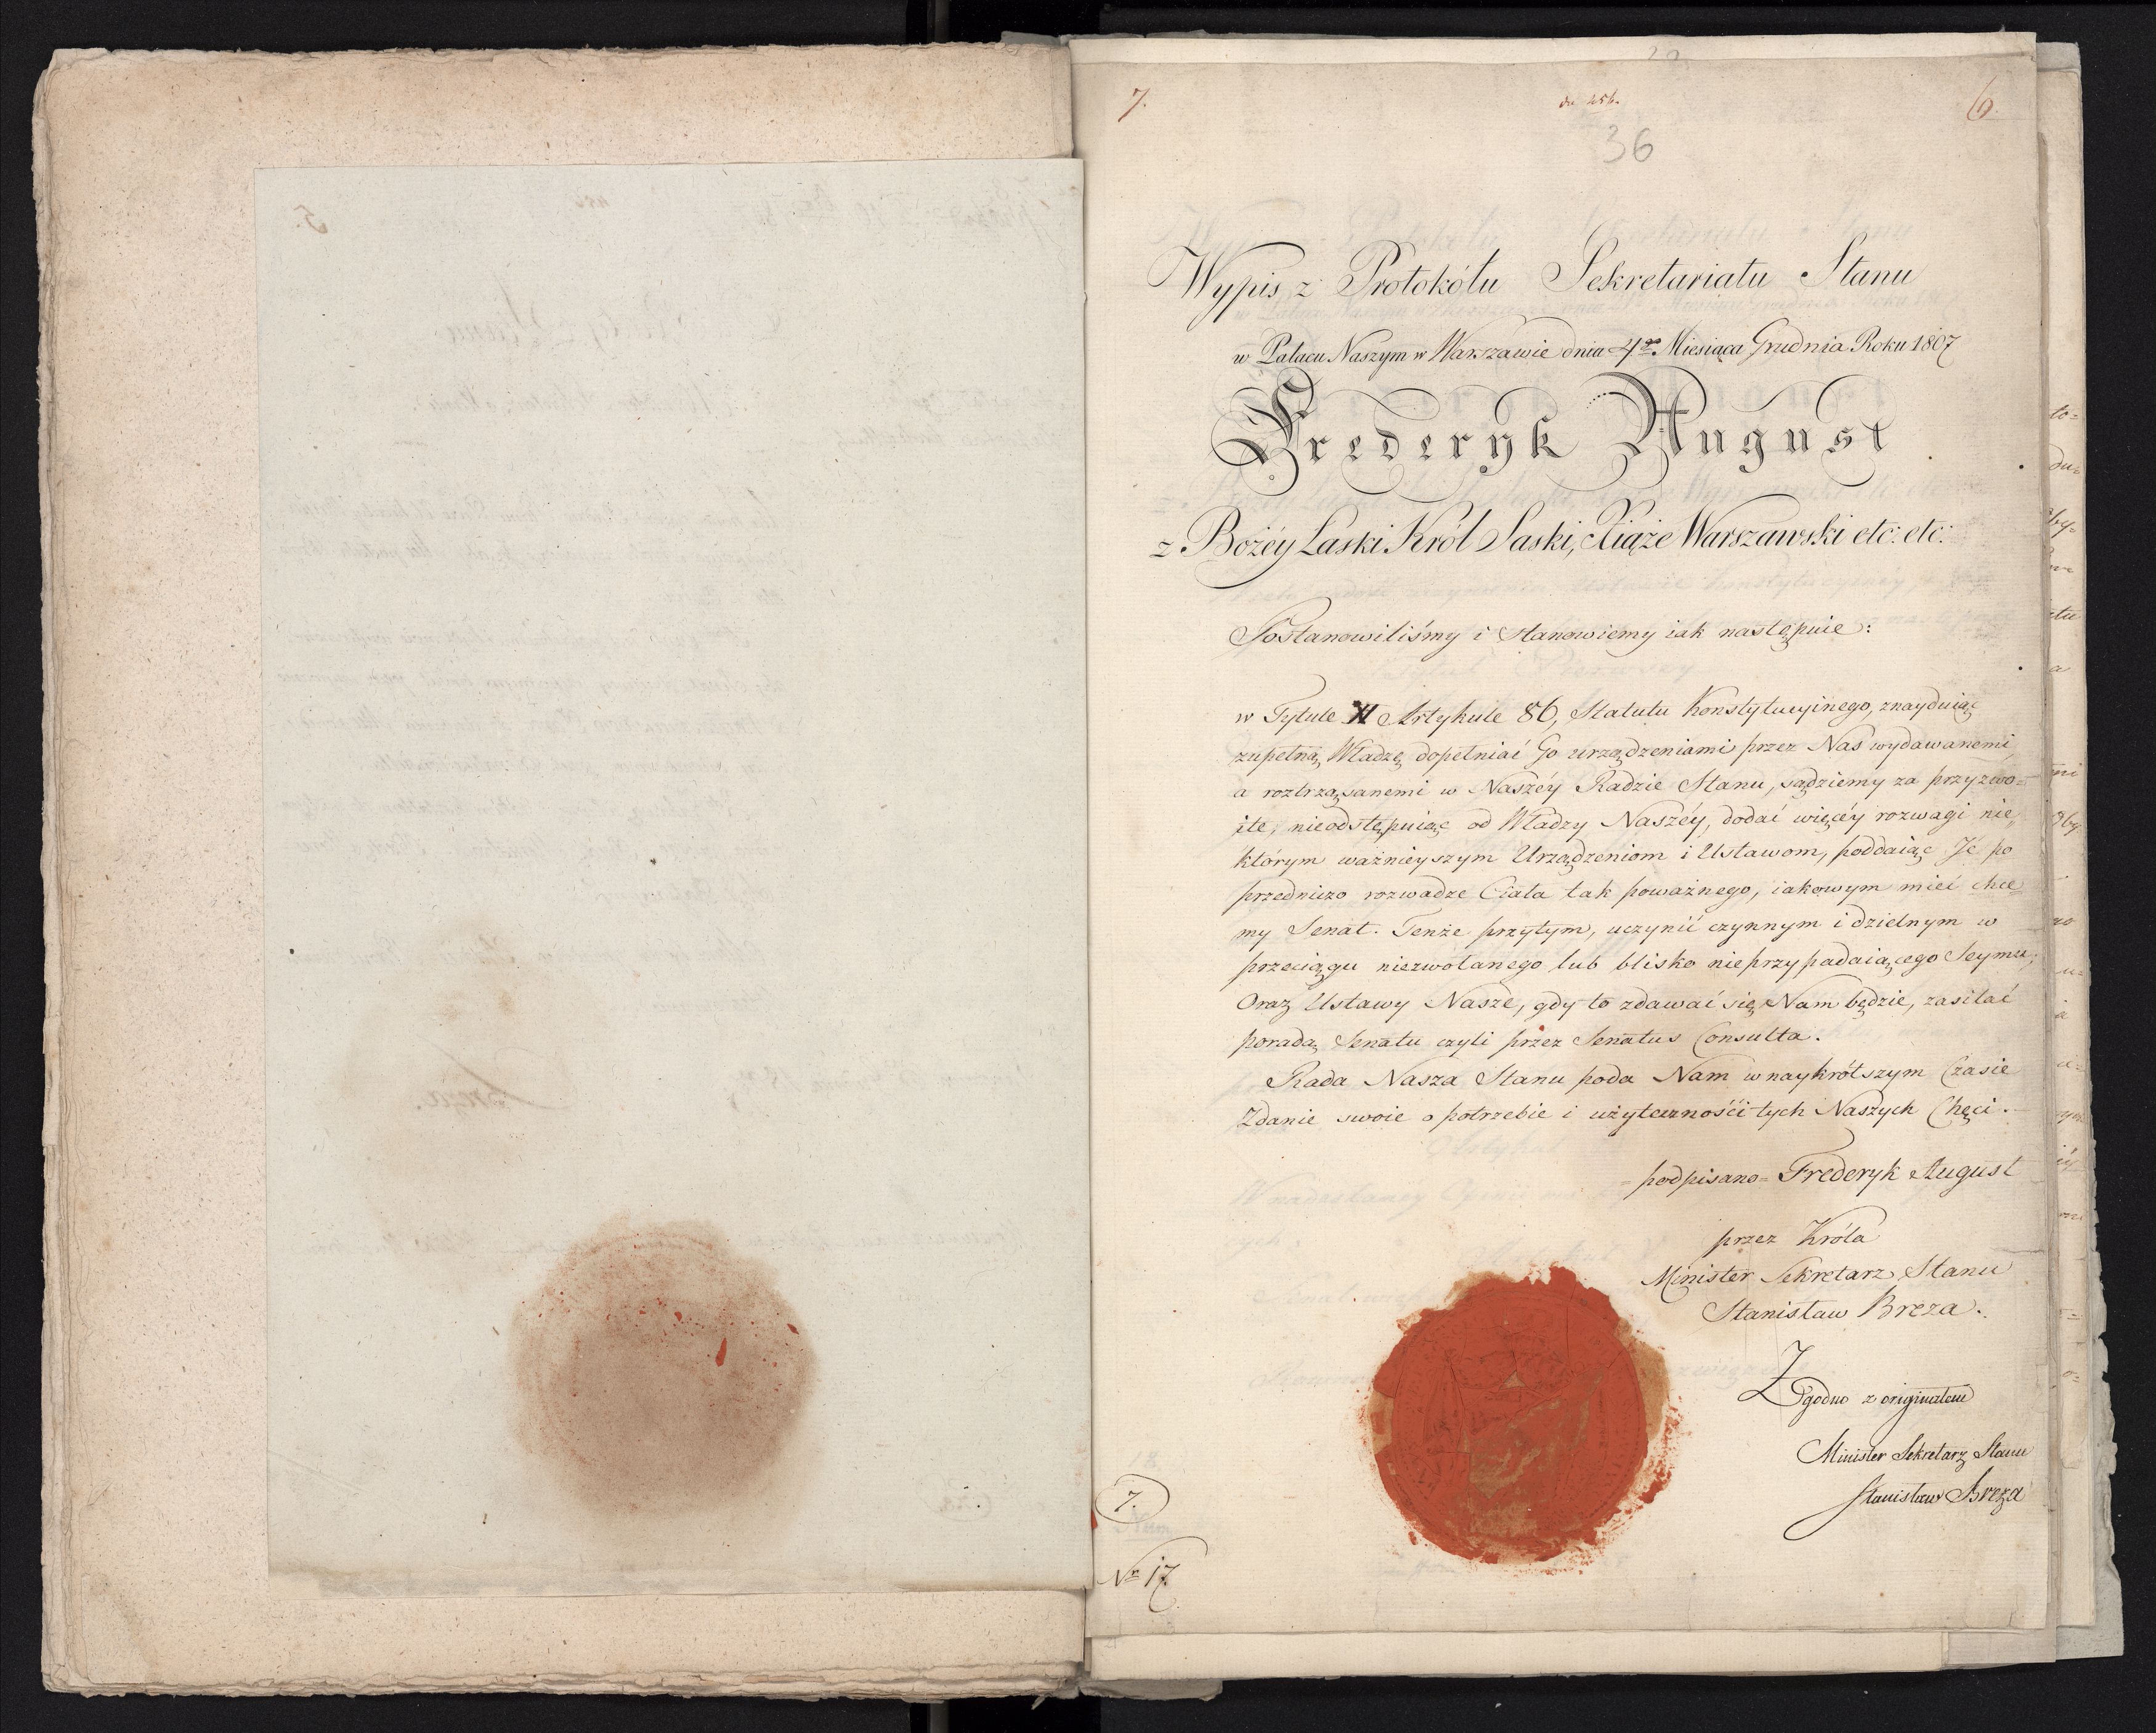 7.
6.
36
Wypis z Protokółu Sekretariatu Stanu
w Pałacu Naszym w Warszawie dnia 4go Miesiąca Grudnia Roku 1807
Frederyk August
z Bożéy Łaski Król Saski, Xiąże Warszawski etc: etc:
Postanowiliśmy i stanowiemy iak następuie:
w Tytule XI Artykule 86, Statutu Konstytucyinego, znayduiąc
zupełną Władzę dopełniać Go urządzeniami przez Nas wydawanemi
a roztrząsanemi w Naszéy Radzie Stanu, sądziemy za przyzwo=
ite, nieodstępuiąc od Władzy Naszéy, dodać więcéy rozwagi nie„
którym ważnieyszym Urządzeniom i Ustawom, poddaiąc Je po
przedniczo rozwadze Ciała tak poważnego, iakowym mieć chce=
my Senat. Tenże przytym, uczynić czynnym i dzielnym w
przeciągu niezwołanego lub blisko nieprzypadaiącego Seymu;
Oraz Ustawy Nasze, gdy to zdawać się Nam będzie, zasilać
poradą Senatu czyli przez Senatus Consulta.
Rada Nasza Stanu poda Nam w naykrótszym Czasie
Zdanie swoie o potrzebie i użyteczności tych Naszych Chęci.
= podpisano = Frederyk August
przez Króla
Minister Sekretarz Stanu
Stanisław Breza.
Zgodno z originałem
Minister Sekretarz Stanu
Stanisław Breza
7.
Nr 17